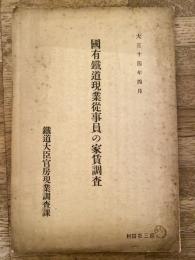 大正十四年四月
國有鐵道現業從事員の家賃調査
鐵道大臣官房現業調査課